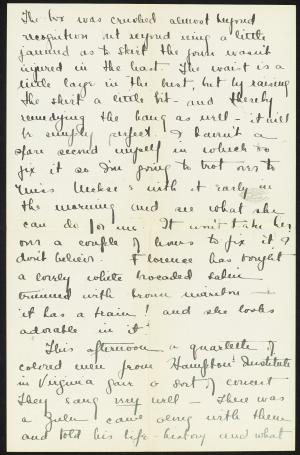 The box was crushed almost beyond
recognition but beyond being a little
jammed as to skirt the gown wasn't
injured in the least. The waist is a
little large in the bust, but by raising
the skirt a little bit - and thereby
remedying the hang as well - it will
be simply perfect. I haven't a
spare second myself in which to
fix it so I'm going to trot over to
Miss with it early in
the morning and see what she
can do for me. It won't take her
over a couple of hours to fix it I
don't believe. Florence has bought
a lovely white brocaded satin
trimmed with brown marabou -
it has a train! and she looks
adorable in it.
This afternoon a quartette of
colored men from Hampton Institute
in Virginia gave a sort of concert
They sang very well - There was
a Zulu came along with them
and told his life-history and what